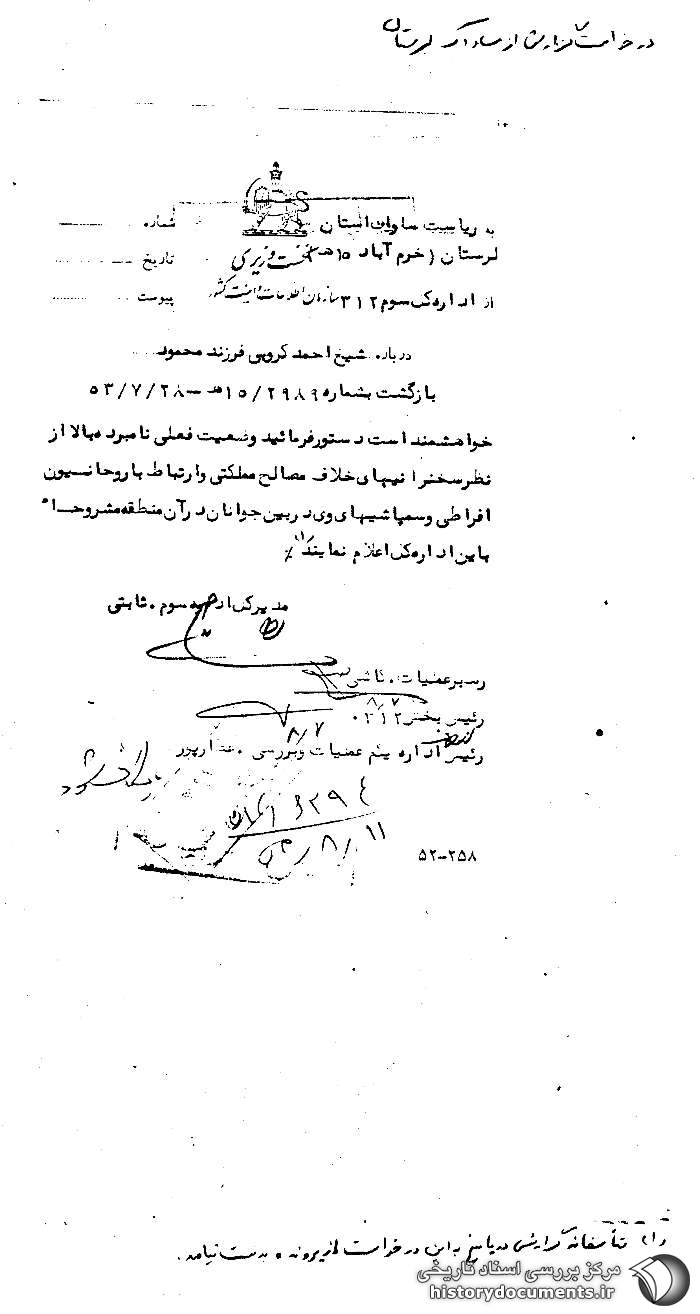 درخواست گزارش از ساواک لرستان
به ریاست ساواک استان
لرستان (خرم آباد ۱۵ هـ) نخست وزیری
از اداره کل سوم ۳۱۲ سازمان اطلاعات و امنیت کشور
شماره
تاریخ
پیوست
درباره شیخ احمد کروبی فرزند محمود
بازگشت بشماره ۱۵/۲۹۸۹ هـ - ۵۳/۷/۲۸
خواهشمند است دستور فرمائید وضعیت فعلی نامبرده بالا از
نظر سخنرانیهای خلاف مصالح مملکتی و ارتباط با روحانسیون
افراطی و سمپاشیهای وی در بین جوانان در آن منطقه مشروحاً
باین اداره کل اعلام نمایند (۱) ٪
مدیر کل اداره سوم . ثابتی
رهبر عملیات .
۸/۷
رئیس بخش ۳۱۲
۸/۷
رئیس اداره یکم عملیات و بررسی . عطارپور
بایگانی شود
۳۲۹۴
۱۱/۸
۵۲-۲۵۸
(۱) متأسفانه گزارشی در پاسخ به این درخواست از پرونده بدست نیامد.
مرکز بررسی اسناد تاریخی
historydocuments.ir